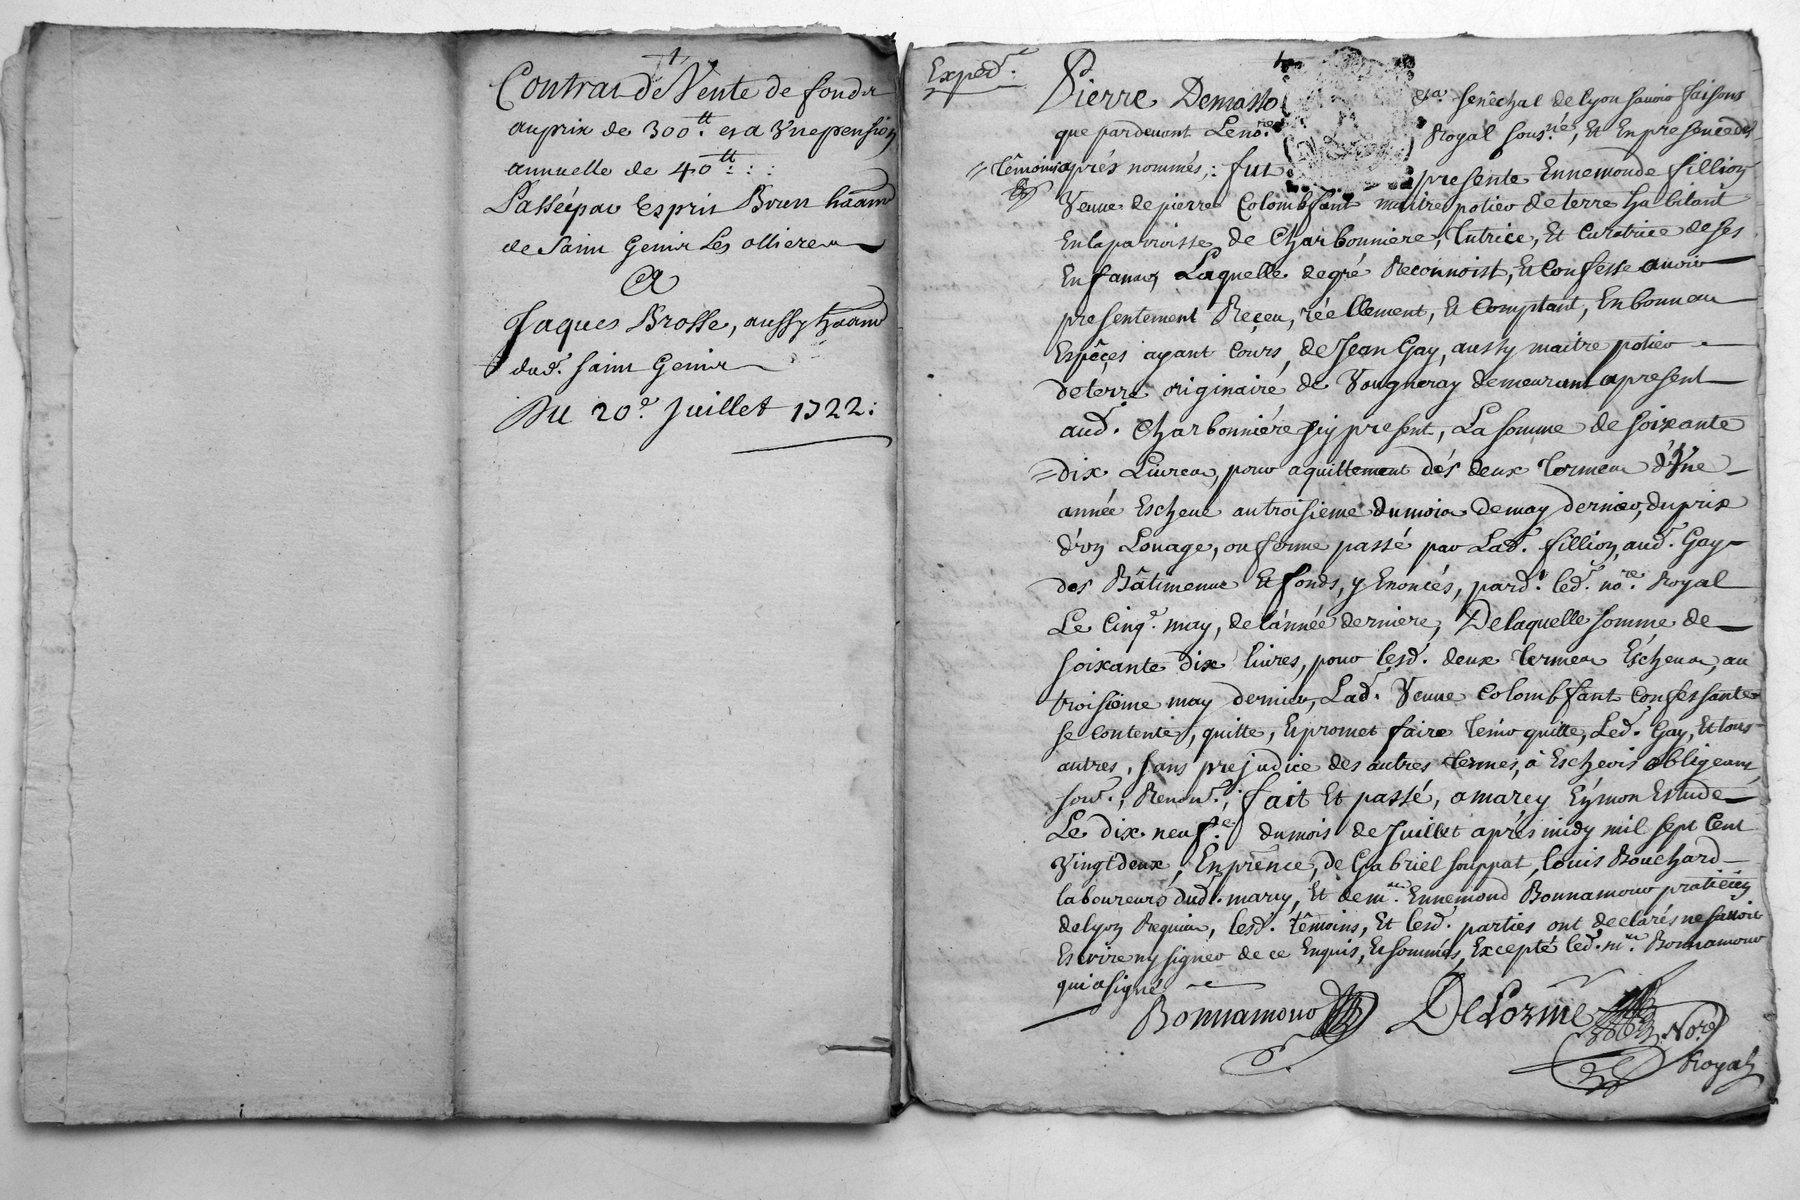 Contrat De Vente de fonds
au prix de 300tt. et a Une pension
annuelle de 40tt : :
Passé par Esprit Brun haant
de Saint Genis Les ollieres
A
Jaques Brosse, aussy haant
dud. saint Genis
Du 20e. Juillet 1722 :
Exped.
Pierre Demasso seneschal de lyon savoir faisons
que pardevant Le nore. Royal sousné, Et En presence des
Témoins aprés nommés, : fut presente Ennemonde fillion
Veuve de pierre Colombsant maitre potier de terre habitant
En la parroisse de Charbonniere, Tutrice, Et Curatrice de ses
Enfants, Laquelle de gré Reconnoist, Et Confesse avoir
presentement Reçeu, réellement, Et Comptant, En bonnes
Espêçes ayant Cours, de Jean Gay, aussy maitre potier
de terre originaire de Vaugneray demeurant a present
aud. Charbonniére icy present, La somme de soixante
dix Livres, pour aquittement dés deux termes d'Une
année Escheue au troisieme du mois de may dernier, du prix
d'un Louage, ou ferme passé par Lad. fillion, aud. Gay
des Bâtiments Et fonds, y Enoncés, pard. led. nore. Royal
Le Cinqe. may, de l'année derniere, De laquelle somme de
soixante dix livres, pour lesd. deux termes Escheus, au
troisieme may dernier, Lad. Veuve Colombsant Confessante
se Contente, quitte, Et promet faire tenir quitte, Led. Gay, Et tous
autres, sans prejudice des autres termes, à Escheoir obligeant
sour., Renonr., fait Et passé, a marcy Eymon Estude
Le dix neufe. du mois de Juillet aprés midy mil sept Cent
Vingt deux, En prênce, de Gabriel souppat, louis Bouchard
laboureurs dud. marcy, Et de mre. Ennemond Bonnamour praticien
de lyon Requis, lesd. témoins, Et lesd. parties ont declarés ne savoir
Escrire ny signer de ce Enquis, Et sommés, Excepté led. mre. Bonnamour
qui a signé
Bonnamour DeLorme Nore
Royal